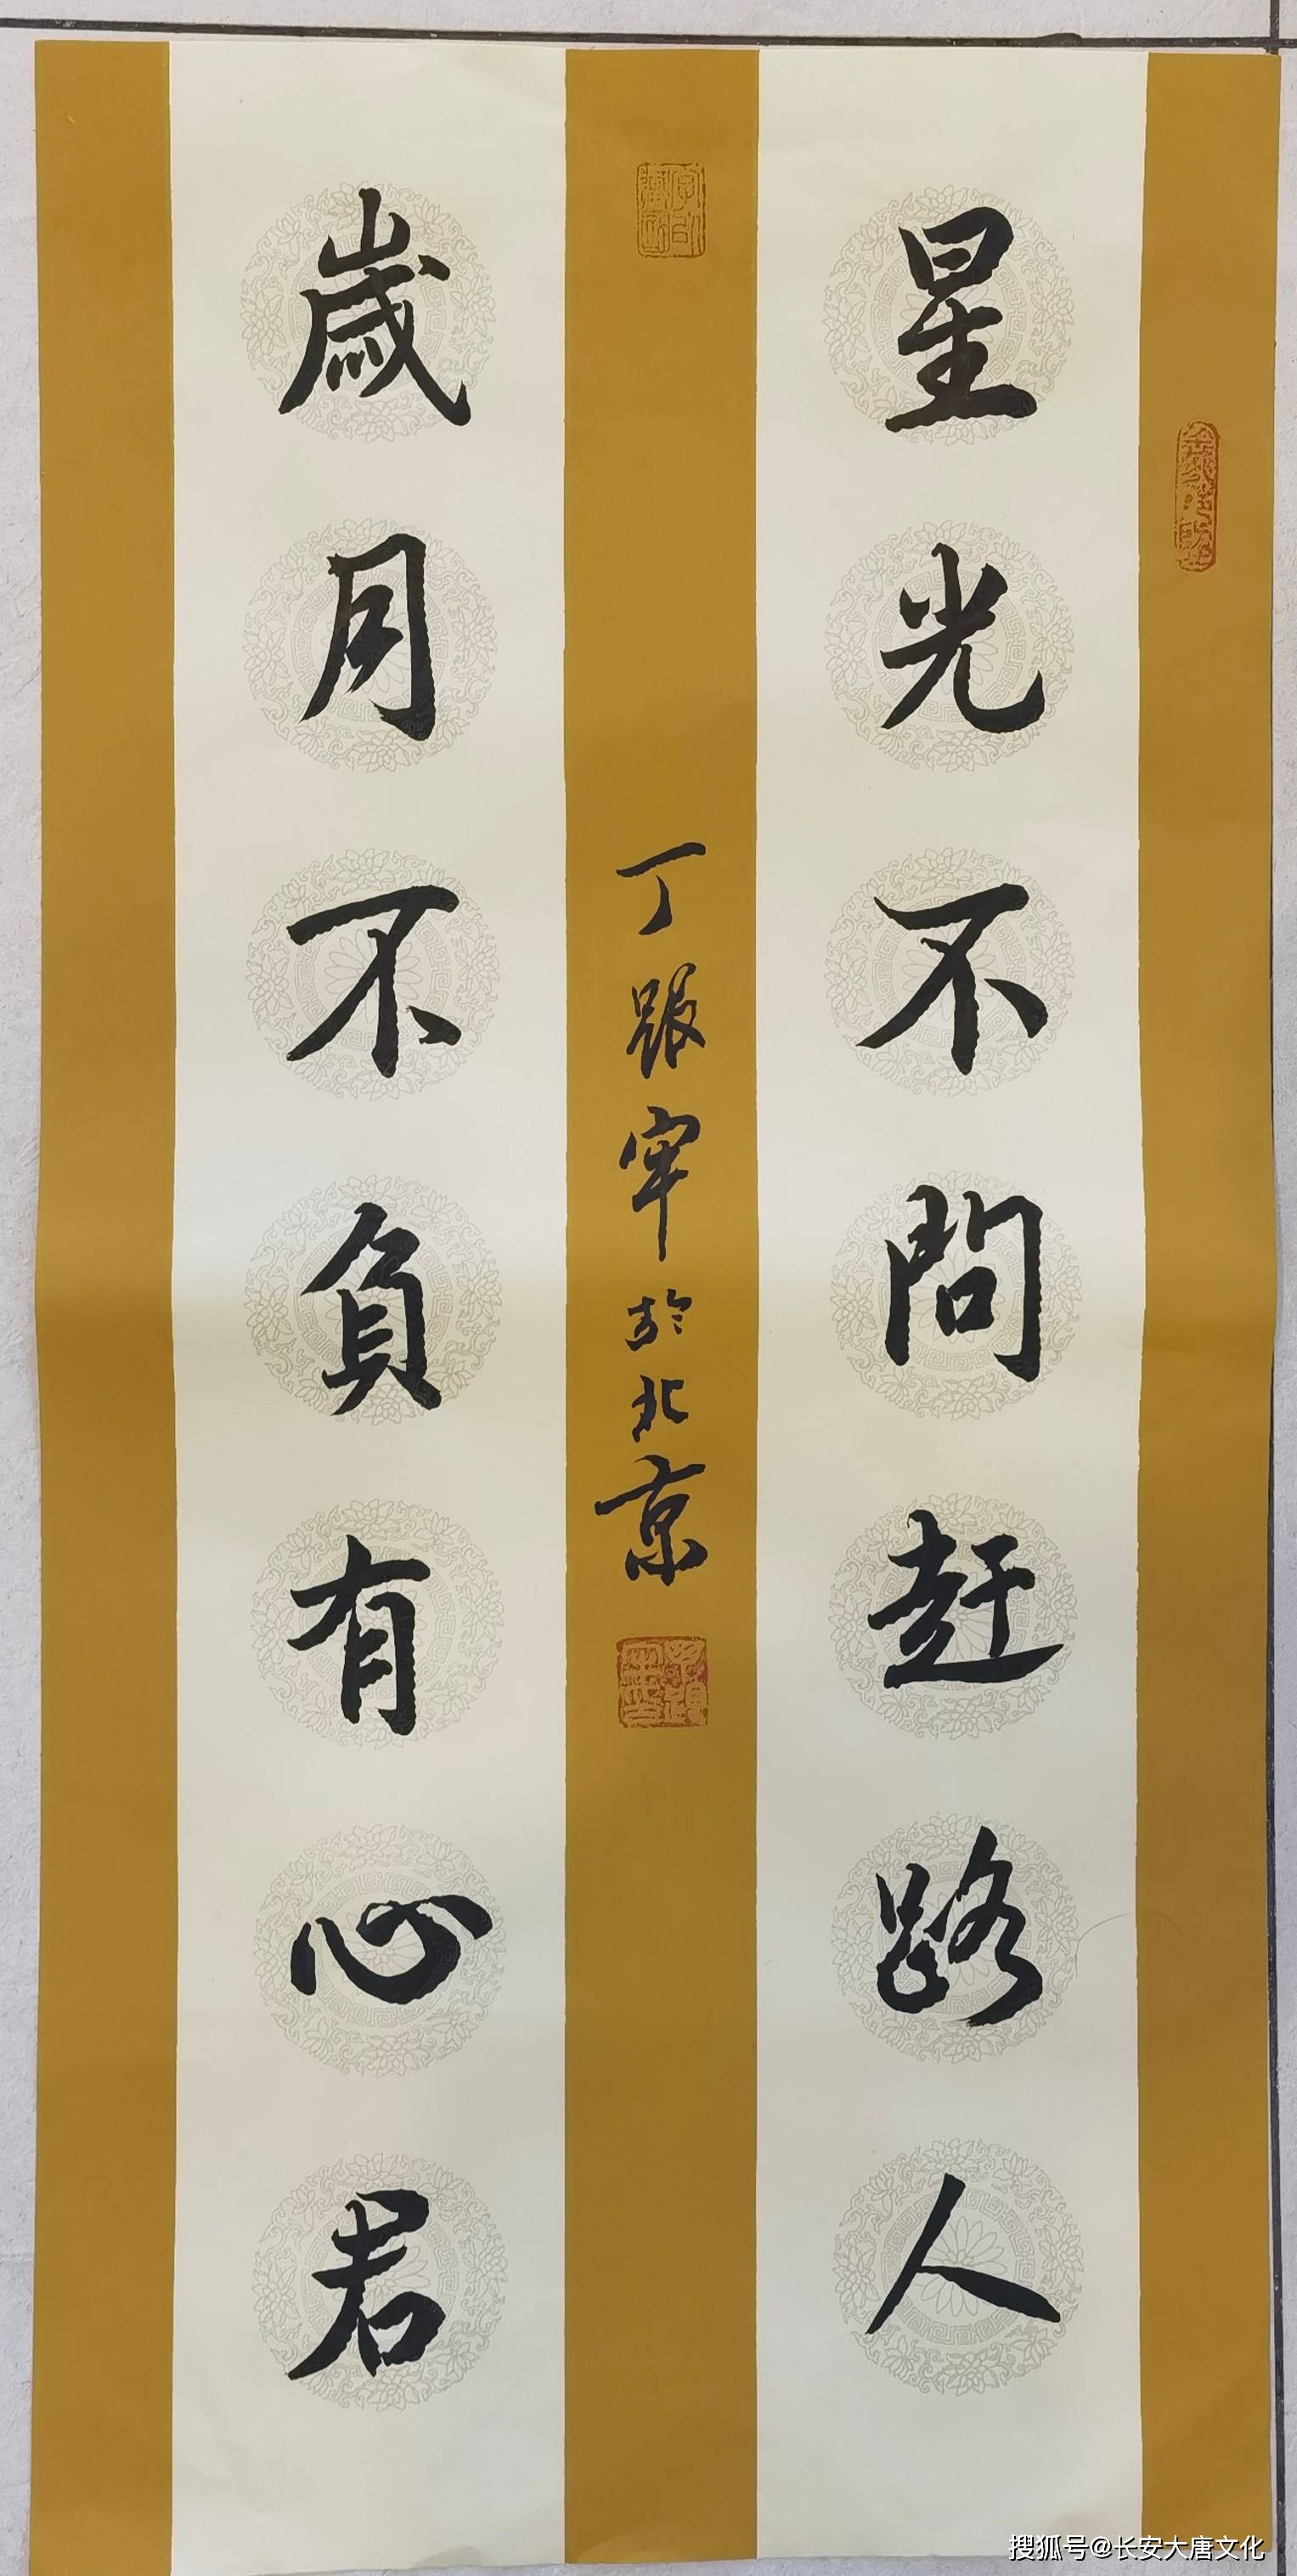 星光不問赶路人
歲月不負有心君
丁跟牢於北京
搜狐号@长安大唐文化